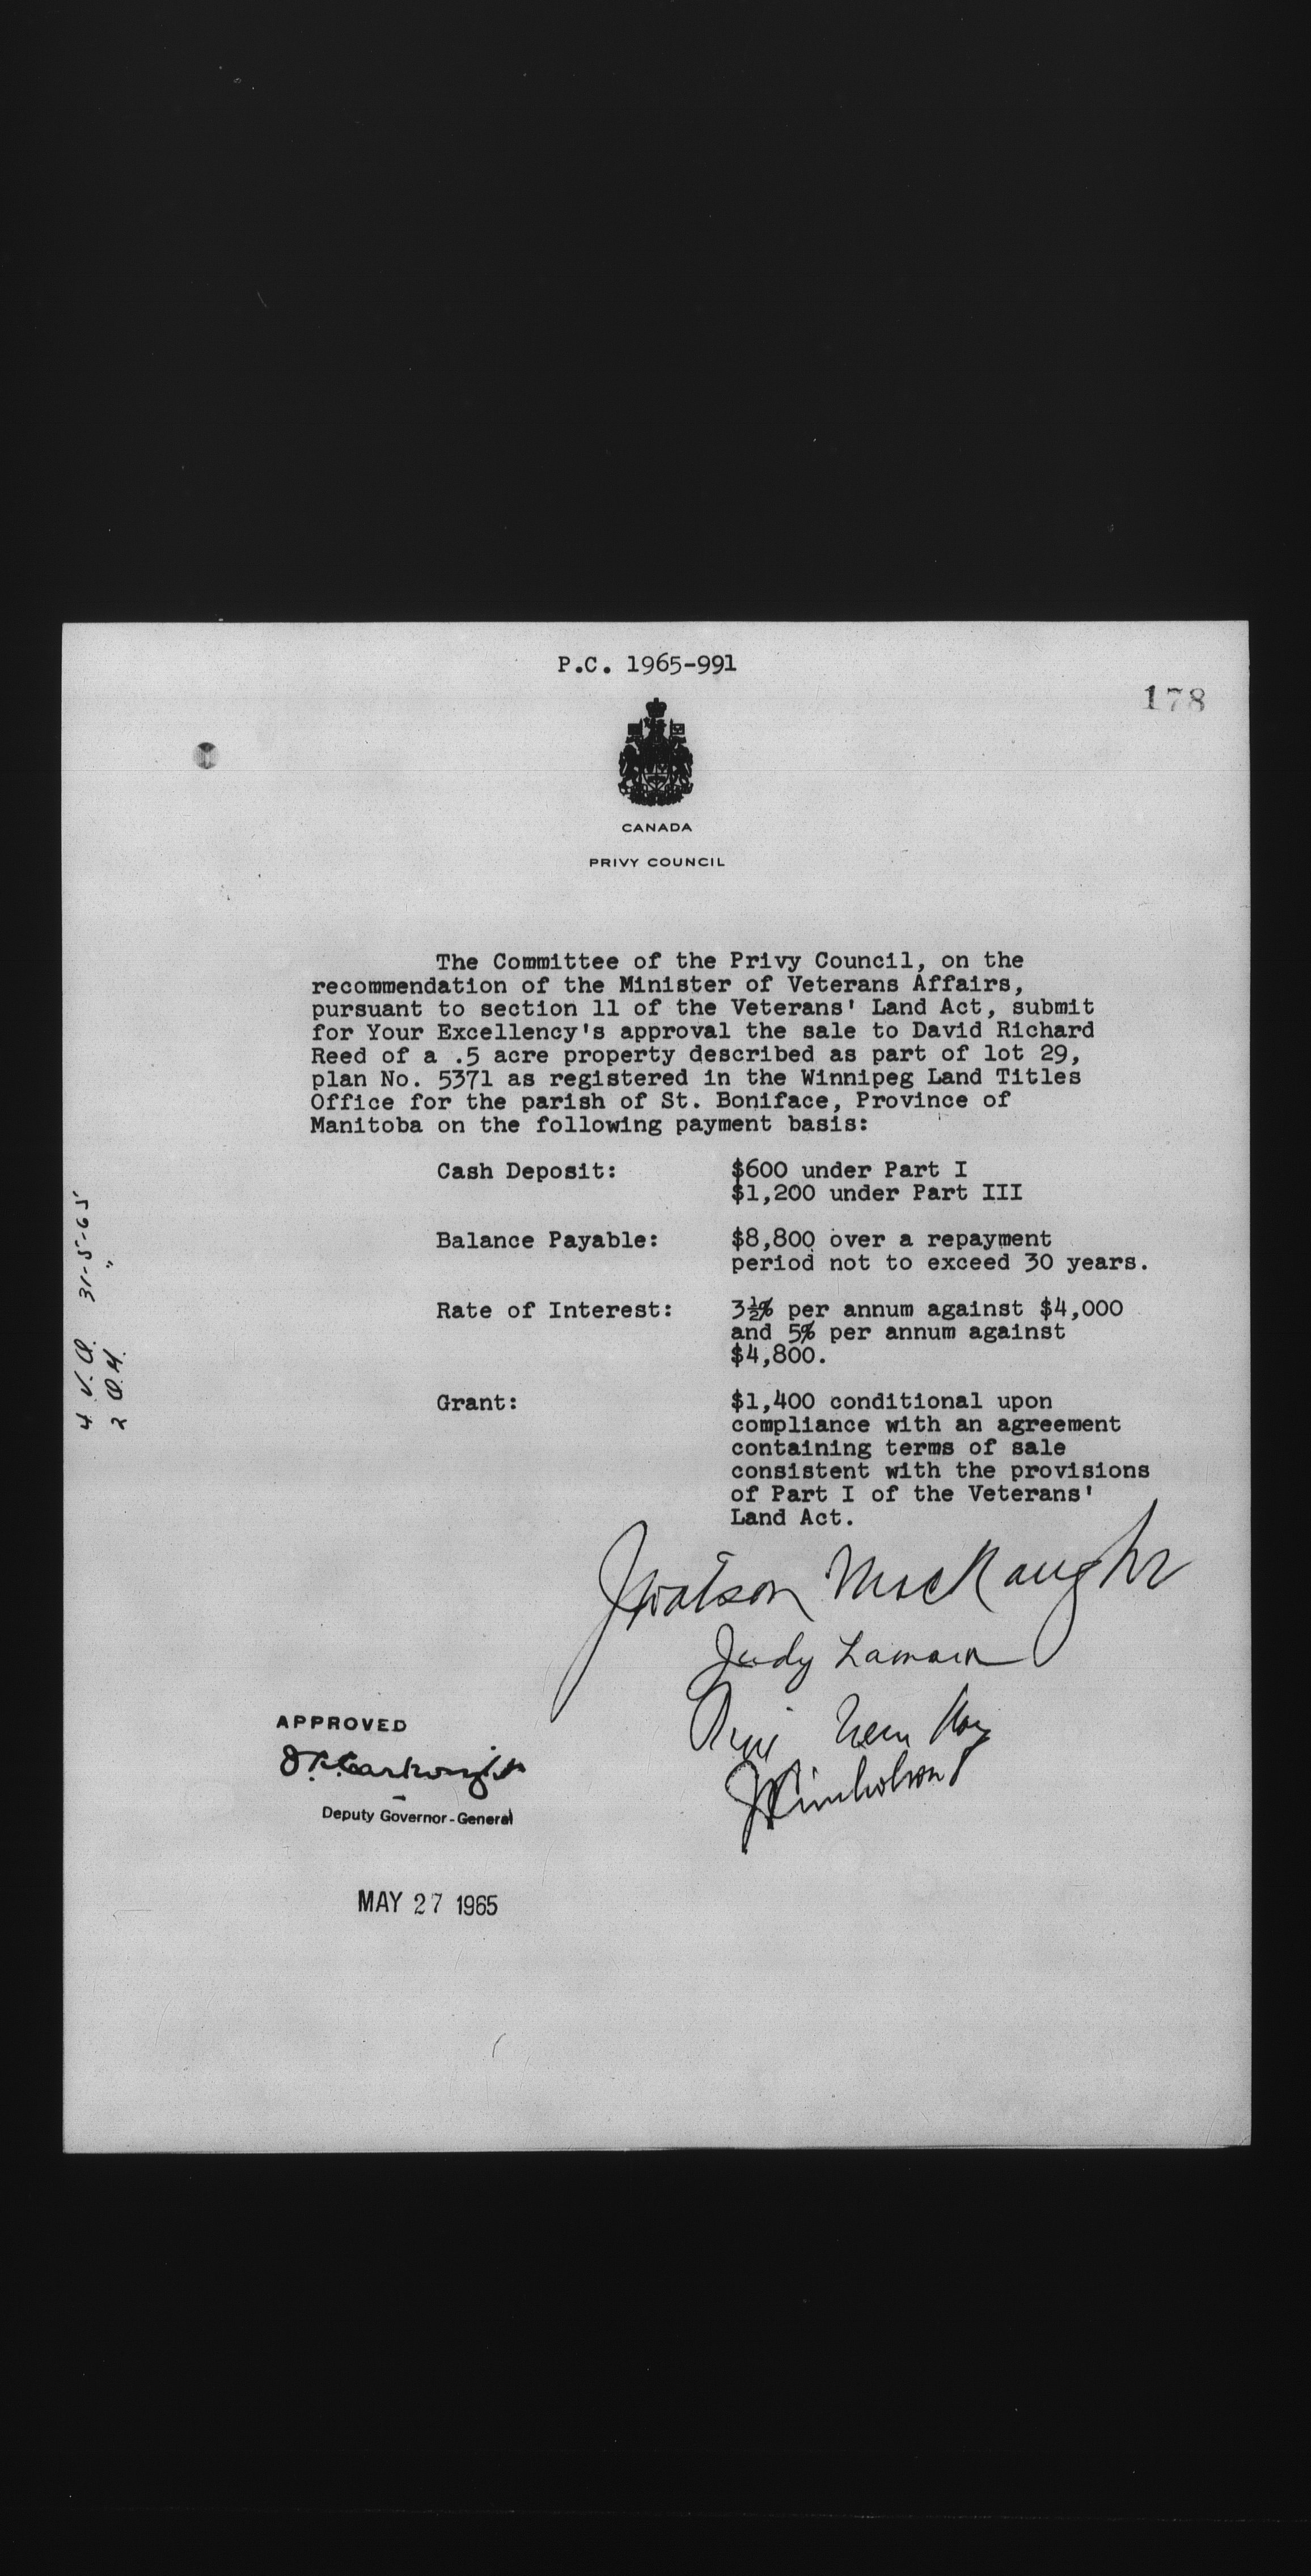 P.C. 1965-991
178
CANADA
PRIVY COUNCIL
The Committee of the Privy Council, on the
recommendation of the Minister of Veterans Affairs,
pursuant to section 11 of the Veterans' Land Act, submit
for Your Excellency's approval the sale to David Richard
Reed of a .5 acre property described as part of lot 29,
plan No. 5371 as registered in the Winnipeg Land Titles
Office for the parish of St. Boniface, Province of
Manitoba on the following payment basis:
Cash Deposit: $600 under Part I
$1,200 under Part III
Balance Payable: $8,800 over a repayment
period not to exceed 30 years.
Rate of Interest: 3½% per annum against $4,000
and 5% per annum against
$4,800.
Grant: $1,400 conditional upon
compliance with an agreement
containing terms of sale
consistent with the provisions
of Part I of the Veterans'
Land Act.
J Watson MacNaught
Judy LaMarsh
JRNicholson
APPROVED
JRCartwright
Deputy Governor-General
MAY 27 1965
4 V.A. 31-5-65
2 "